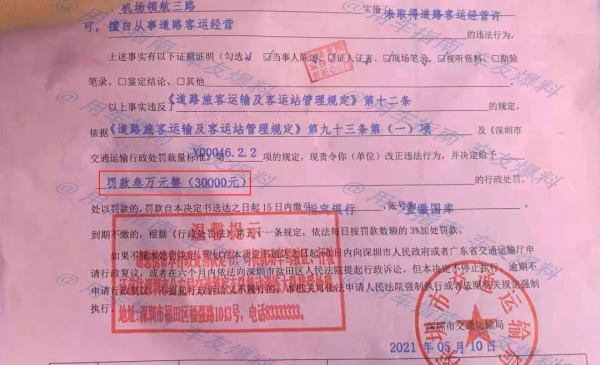 机场领航三路 实施了 未取得道路客运经营许
可，擅自从事道路客运经营
的违法行为。
上述事实有以下证据证明（勾选√）☑当事人陈述 ☑证人证言、☑现场笔录、☑视听资料、☐勘验
笔录、☐鉴定结论、☐其他
以上事实违反了《道路旅客运输及客运站管理规定》第十二条 的规定，
依据《道路旅客运输及客运站管理规定》第九十三条第（一）项 及《深圳市
交通运输行政处罚裁量标准》第 X00046.2.2 项的规定，现责令你（单位）改正违法行为，并决定给予
罚款叁万元整（30000元） 的行政处罚。
处以罚款的，罚款自本决定书送达之日起15日内缴至 指定银行 ，账号为 直缴国库 ，
到期不缴的，根据《行政处罚法》第五十一条规定，依法每日按罚款数额的3%加处罚款。
温馨提示
如果不服本处罚决定，可以在本决定书送达之日起 日内向深圳市人民政府或者广东省交通运输厅申
请行政复议，或者在六个月内依法向深圳市盐田区人民法院提起行政诉讼，但本决定不停止执行，逾期不
申请行政复议、不提起行政诉讼又不履行的，本机关可依法申请人民法院强制执行或者依照有关规定强制
执行。
地址:深圳市福田区福强路1043号，电话83333333。
深圳市交通运输局
深圳市交通运输局
2021 年 05 月 10 日
@用车指南 车友爆料